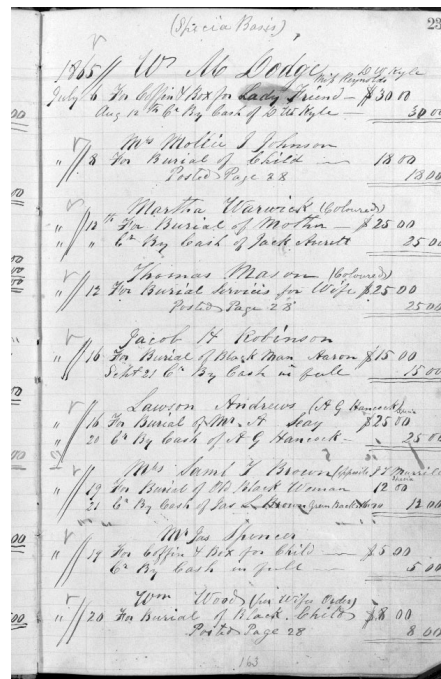 (Specia Basis)
23
1865 Wm M Dodge D W Kyle
Miss Reynolds
July 6 For Coffin & Box for Lady Friend — $30 00
Aug 12th Cr By Cash of D W Kyle — 30 00
Mrs Mollie J Johnson
" 8 For Burial of Child — 18 00
Posted Page 28 18 00
Martha Warwick (Coloured)
" 12th For Burial of Mother $25 00
" " Cr By Cash of Jack Averett 25 00
Thomas Mason (Coloured)
" 12 For Burial Services for Wife $25 00
Posted Page 28 25 00
Jacob H Robinson
" 16 For Burial of Black Man Aaron $15 00
Sept 21 Cr By Cash in full 15 00
Lawson Andrews (A G Hancock
" 16 For Burial of Mr. A Seay $25 00
" 20 Cr By Cash of A G Hancock — 25 00
Mrs Saml T Brown (opposite J T Murrill
" 19 For Burial of Old Black Woman 12 00
21 Cr By Cash of Jas L Brown Green Backs 12 00
Mr Jas Spencer
" 19 For Coffin & Box for Child — $5 00
Cr By Cash in full — 5 00
Wm Wood (per Wifes Order)
" 20 For Burial of Black Child $8 00
Posted Page 28 8 00
163